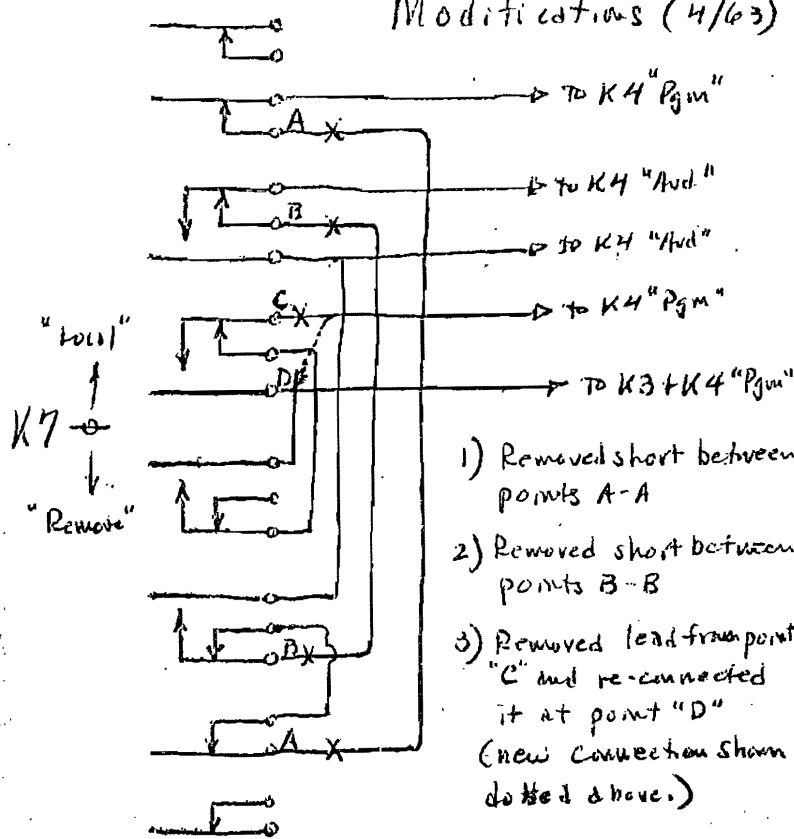 Modifications (4/63)
To K4 "Pgm"
A
to K4 "Aud"
B
to K4 "Aud"
C
to K4 "Pgm"
D
To K3 + K4 "Pgm"
"Local"
K7
"Remove"
1) Removed short between
points A-A
2) Removed short between
points B-B
B
3) Removed lead from point
"C" and re-connected
it at point "D"
(new connection shown
dotted above.)
A